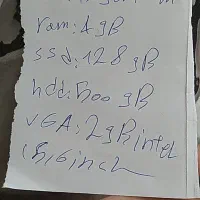 ram: 4gB
ssd: 128 gB
hdd: 500 gB
VGA: 2gB intel
15,6 inch